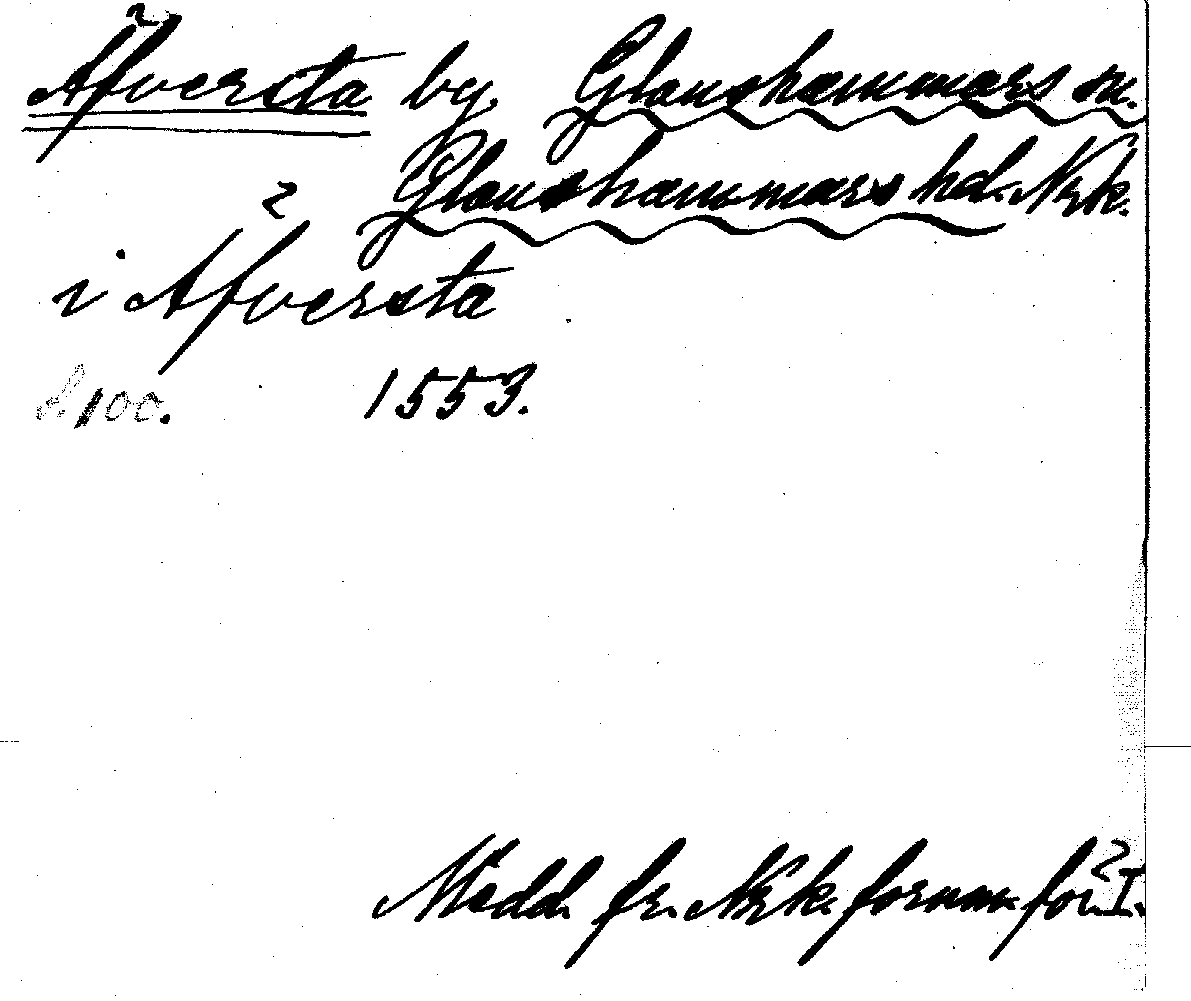 Äfversta by, Glanshammars sn.
Glanshammars hd. Nrk.
i Äfversta
s. 100. 1553.
Medd. fr. Nrk. fornm. för. I.